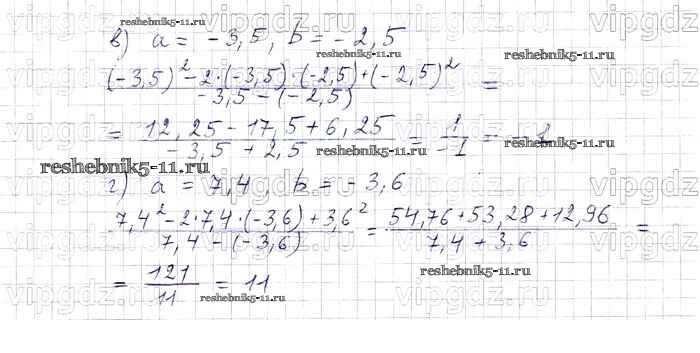 в) a = -3,5, b = -2,5
(-3,5)² - 2·(-3,5)·(-2,5) + (-2,5)² / -3,5 - (-2,5) =
= 12,25 - 17,5 + 6,25 / -3,5 + 2,5 = 1 / -1 = -1
г) a = 7,4, b = -3,6
7,4² - 2·7,4·(-3,6) + 3,6² / 7,4 - (-3,6) = 54,76 + 53,28 + 12,96 / 7,4 + 3,6 =
= 121 / 11 = 11
reshebnik5-11.ru
reshebnik5-11.ru
reshebnik5-11.ru
reshebnik5-11.ru
reshebnik5-11.ru
reshebnik5-11.ru
reshebnik5-11.ru
reshebnik5-11.ru
vipgdz.ru
vipgdz.ru
vipgdz.ru